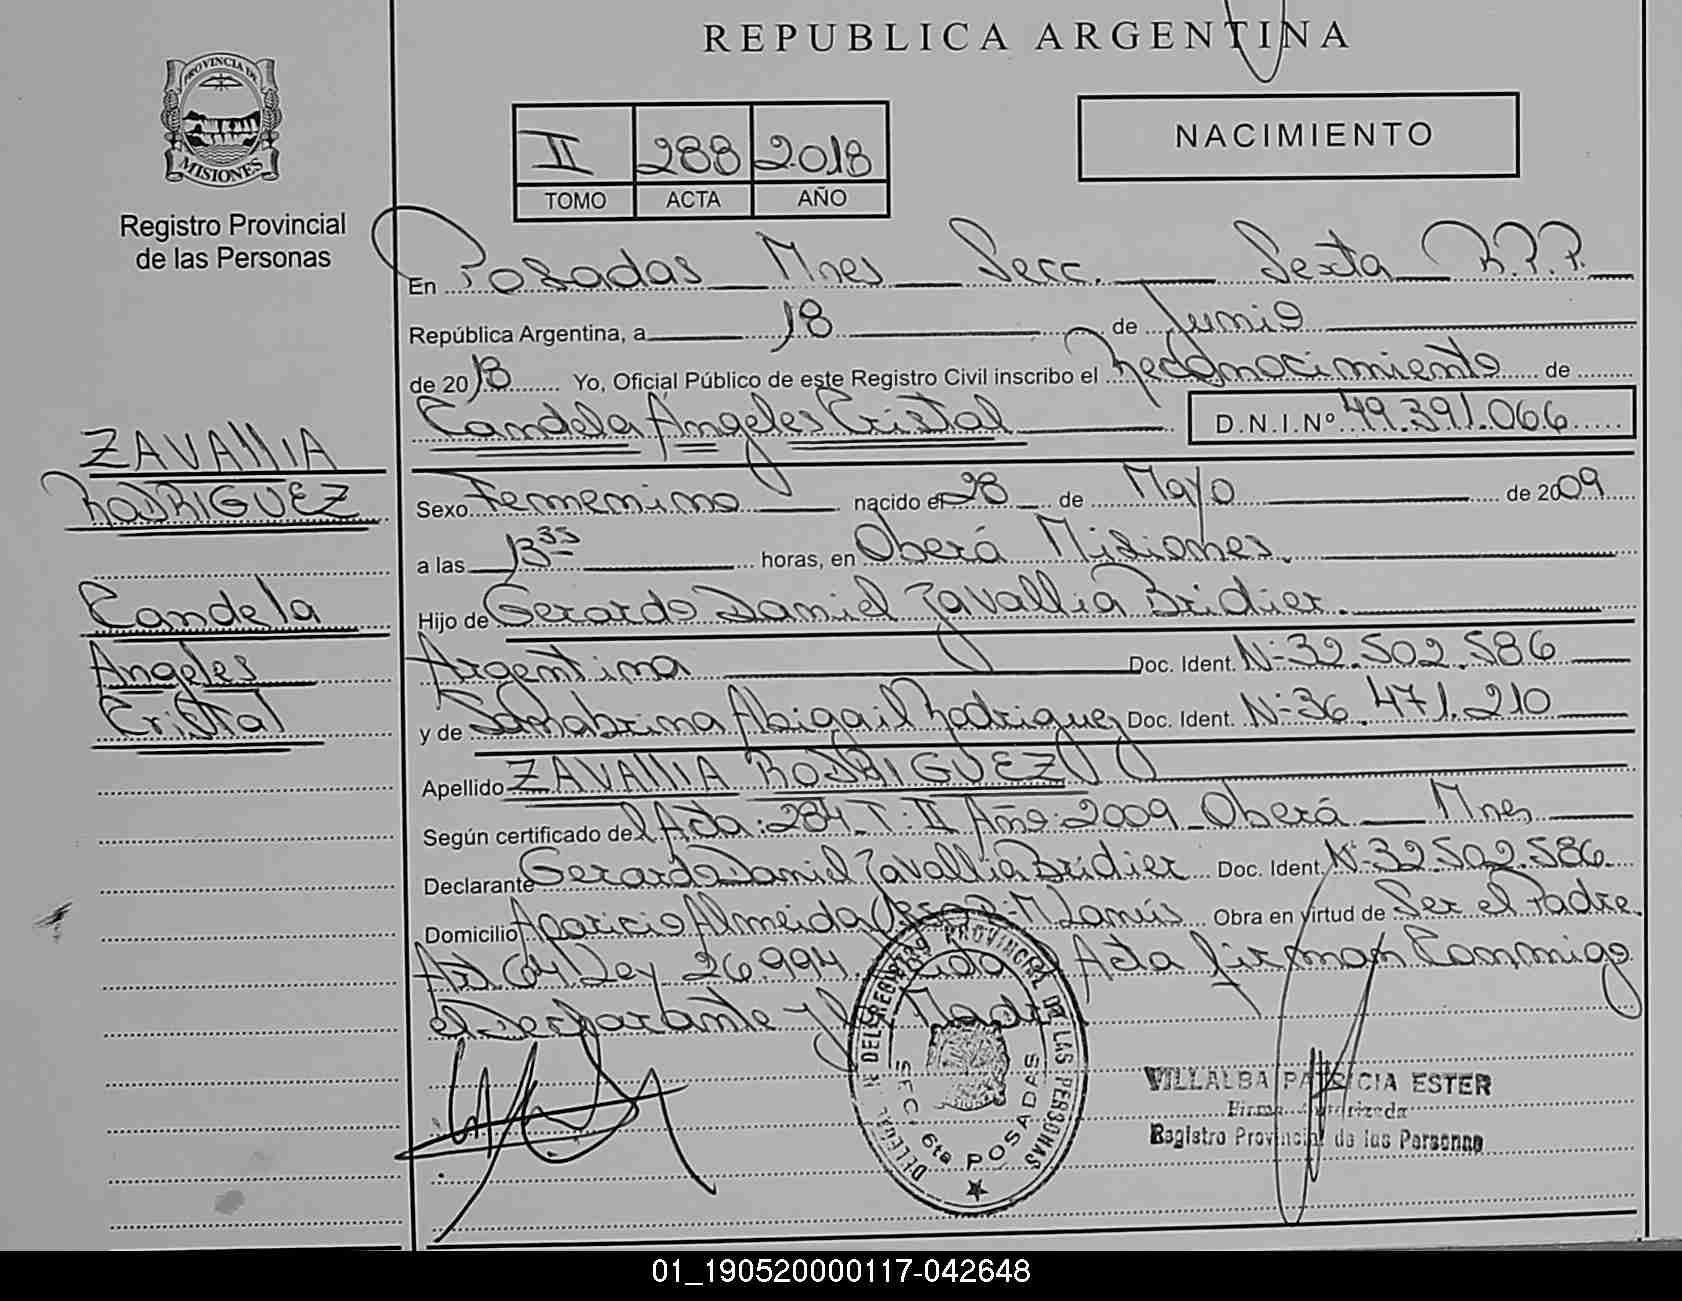 REPUBLICA ARGENTINA
PROVINCIA DE
MISIONES
Registro Provincial
de las Personas
II 288 2.018
TOMO ACTA AÑO
NACIMIENTO
En Posadas Mnes Secc. Sexta R.P.P.
República Argentina, a 18 de Junio
de 2018 Yo, Oficial Público de este Registro Civil inscribo el Reconocimiento de
Candela Ángeles Cristal D.N.I.Nº 49.391.066
ZAVAllIA
RODRIGUEZ
Candela
Angeles
Cristal
Sexo Femenino nacido el 28 de Mayo de 2009
a las 13 35 horas, en Oberá Misiones.
Hijo de Gerardo Daniel Zavallia Bridier.
Argentina Doc. Ident. Nº 32.502.586
y de Abigail Rodriguez Doc. Ident. Nº 36.471.210
Apellido ZAVAllIA RODRIGUEZ
Según certificado del Acta: 284 T: II Año: 2009 Oberá Mnes
Declarante Gerardo Daniel Zavallia Bridier Doc. Ident. Nº 32.502.586
Domicilio Aparicio Almeida Lanús Obra en virtud de Ser el Padre.
Art 64 Ley 26.994 Acta firman Conmigo
el Declarante y la Madre
DELEGACION DEL REGISTRO PROVINCIAL DE LAS PERSONAS
SECC. 6ta POSADAS
VILLALBA PATRICIA ESTER
Firma Autorizada
Registro Provincial de las Personas
01_190520000117-042648